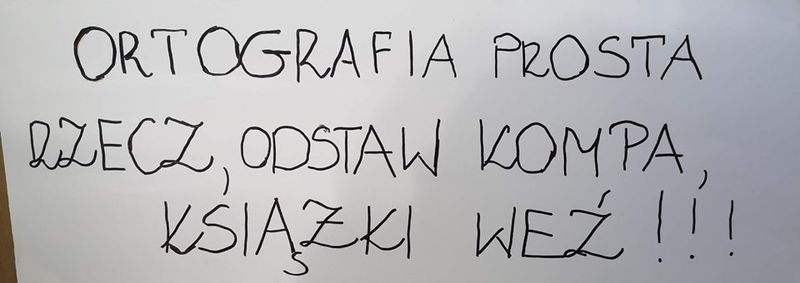 ORTOGRAFIA PROSTA
RZECZ, ODSTAW KOMPA,
KSIĄŻKI WEŹ!!!